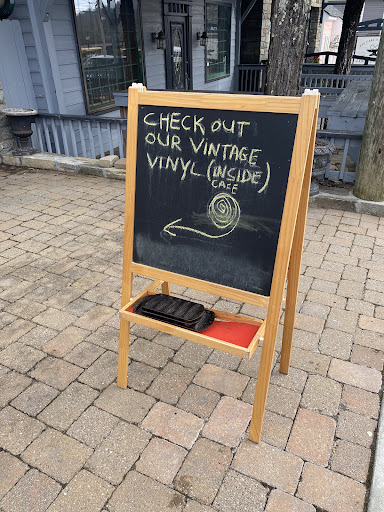 CHECK OUT
OUR VINTAGE
VINYL (INSIDE)
CAFE